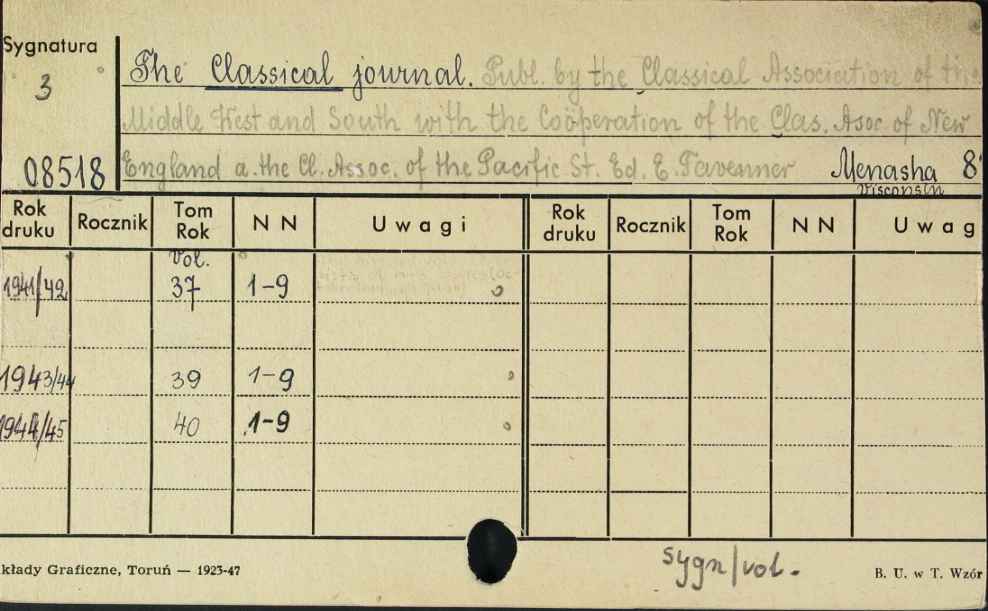 Sygnatura
3
08518
The Classical journal. Publ. by the Classical Association of the
Middle West and South with the Coöperation of the Clas. Asoc. of New
England a. the Cl. Assoc. of the Pacific St. Ed. E. Tavenner Menasha 8°
Wisconsin
Rok druku Rocznik Tom Rok NN Uwagi Rok druku Rocznik Tom Rok NN Uwag
Vol.
1941/42 37 1-9
1943/44 39 1-9
1944/45 40 1-9
sygn/vol.
kłady Graficzne, Toruń — 1923-47 B. U. w T. Wzór